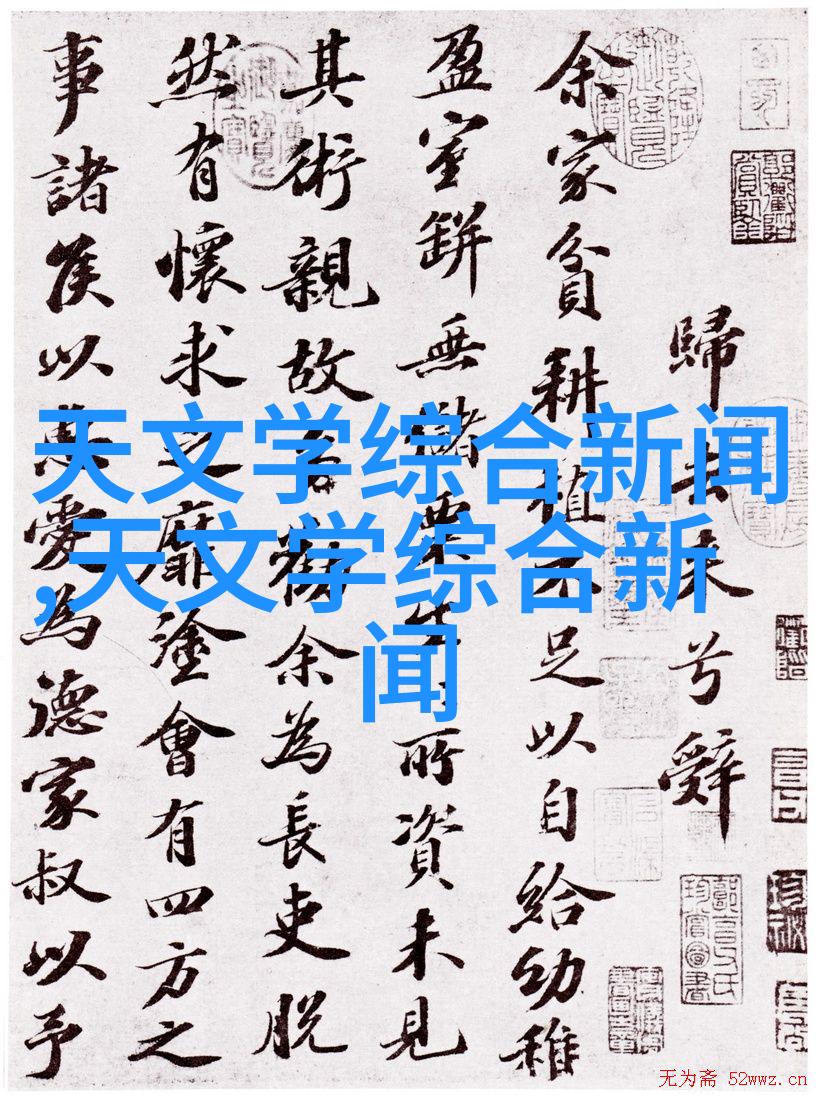 歸去来兮辭
余家貧耕植不足以自給幼稚
盈室缾無儲粟生所資未見
其術親故勸余為長吏脫
然有懷求之靡塗會有四方之
事諸侯以惠愛為德家叔以予
天文学综合新闻
,天文学综合新
闻
无为斋 52wwz.cn